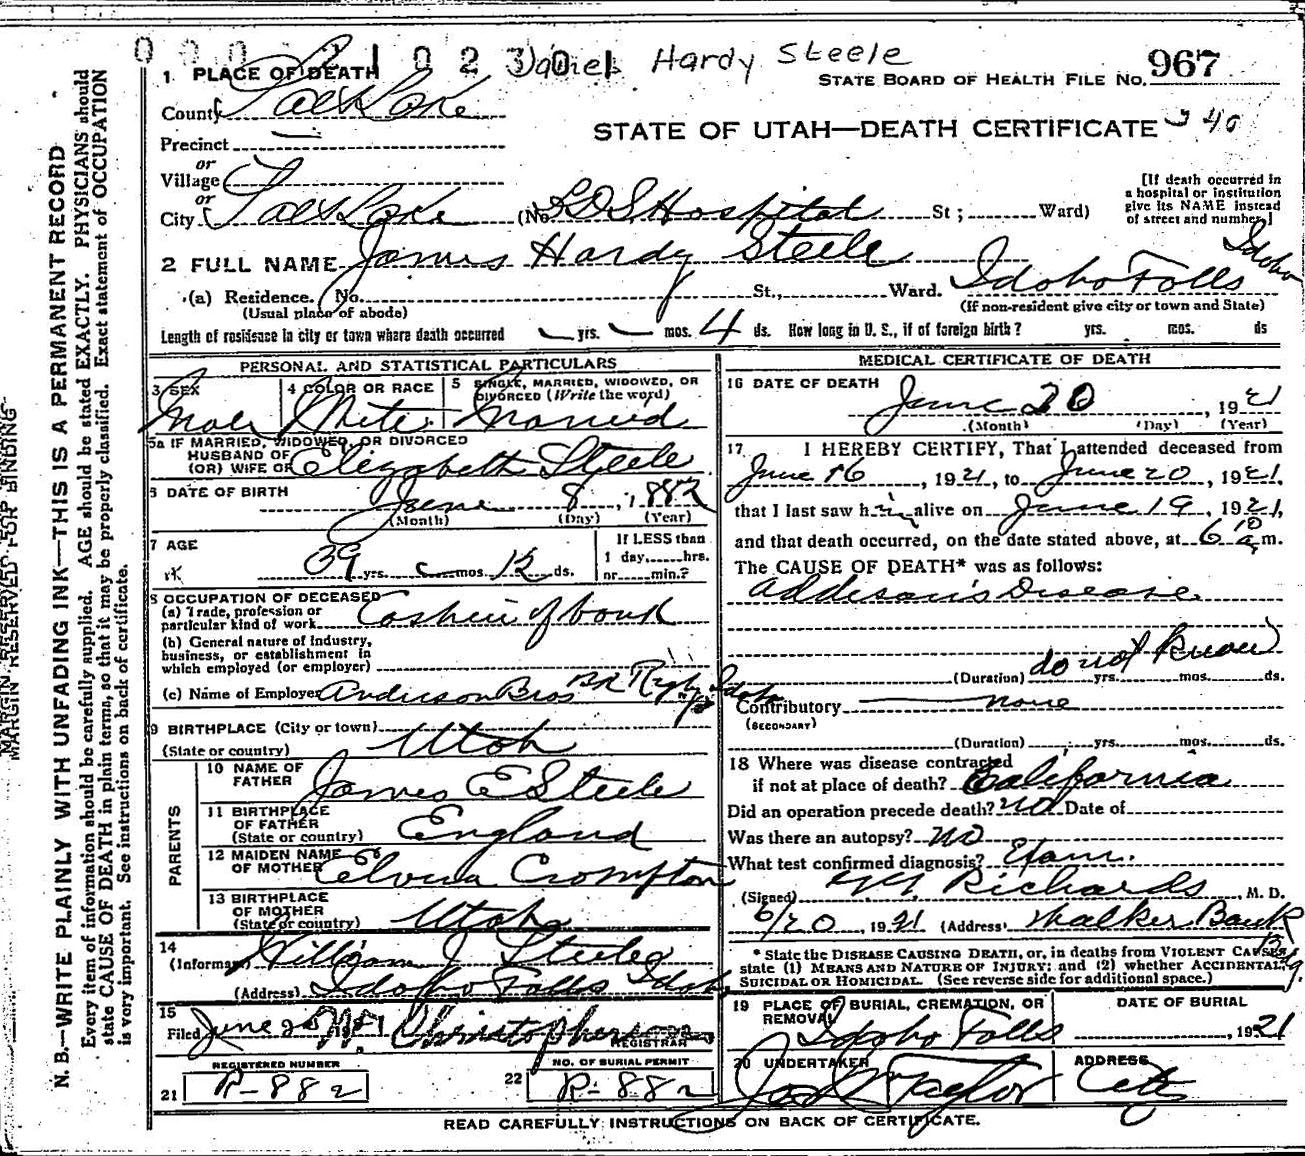 000 21023 01 Daniel Hardy Steele
STATE BOARD OF HEALTH FILE NO. 967
1 PLACE OF DEATH
County Salt Lake
STATE OF UTAH—DEATH CERTIFICATE 240
Precinct
or
Village
or
City Salt Lake (No. LDS Hospital St; Ward)
[If death occurred in
a hospital or institution
give its NAME instead
of street and number.]
2 FULL NAME James Hardy Steele
(a) Residence. No. St., Ward. Idaho Falls Idaho
(Usual place of abode) (If non-resident give city or town and State)
Length of residence in city or town where death occurred — yrs. — mos. 4 ds. How long in U. S., if of foreign birth? yrs. mos. ds
PERSONAL AND STATISTICAL PARTICULARS
3 SEX
Male
4 COLOR OR RACE
White
5 SINGLE, MARRIED, WIDOWED, OR
DIVORCED (Write the word)
Married
5a IF MARRIED, WIDOWED, OR DIVORCED
HUSBAND OF
(OR) WIFE OF Elizabeth Steele
6 DATE OF BIRTH June 8, 1882
(Month) (Day) (Year)
7 AGE
39 yrs. — mos. 12 ds.
If LESS than
1 day, hrs.
or min.?
8 OCCUPATION OF DECEASED
(a) Trade, profession or
particular kind of work Cashier of bank
(b) General nature of industry,
business, or establishment in
which employed (or employer)
(c) Name of Employer Anderson Bros Bk Rigby Idaho
9 BIRTHPLACE (City or town)
(State or country) Utah
PARENTS
10 NAME OF
FATHER James E Steele
11 BIRTHPLACE
OF FATHER
(State or country) England
12 MAIDEN NAME
OF MOTHER Elvira Crompton
13 BIRTHPLACE
OF MOTHER
(State or country) Utah
14
(Informant) William J Steele
(Address) Idaho Falls Idaho
15
Filed June 20 1921 Christopherson
REGISTRAR
REGISTERED NUMBER
21 R-882
NO. OF BURIAL PERMIT
22 R-882
MEDICAL CERTIFICATE OF DEATH
16 DATE OF DEATH
June 20, 1921
(Month) (Day) (Year)
17 I HEREBY CERTIFY, That I attended deceased from
June 16, 1921, to June 20, 1921,
that I last saw him alive on June 19, 1921,
and that death occurred, on the date stated above, at 6 10 a.m.
The CAUSE OF DEATH* was as follows:
Addison's Disease
do not know
(Duration) yrs. mos. ds.
Contributory none
(SECONDARY)
(Duration) yrs. mos. ds.
18 Where was disease contracted
if not at place of death? California
Did an operation precede death? no Date of
Was there an autopsy? no
What test confirmed diagnosis? Exam.
(Signed) Richards, M. D.
6/20 1921 (Address) Walker Bank
* State the DISEASE CAUSING DEATH, or, in deaths from VIOLENT CAUSES,
state (1) MEANS AND NATURE OF INJURY; and (2) whether ACCIDENTAL,
SUICIDAL OR HOMICIDAL. (See reverse side for additional space.)
19 PLACE OF BURIAL, CREMATION, OR
REMOVAL
Idaho Falls
DATE OF BURIAL
1921
20 UNDERTAKER
Taylor
ADDRESS
City
READ CAREFULLY INSTRUCTIONS ON BACK OF CERTIFICATE.
MARGIN RESERVED FOR BINDING
N. B.—WRITE PLAINLY WITH UNFADING INK—THIS IS A PERMANENT RECORD
Every item of information should be carefully supplied. AGE should be stated EXACTLY. PHYSICIANS should
state CAUSE OF DEATH in plain terms, so that it may be properly classified. Exact statement of OCCUPATION
is very important. See instructions on back of certificate.